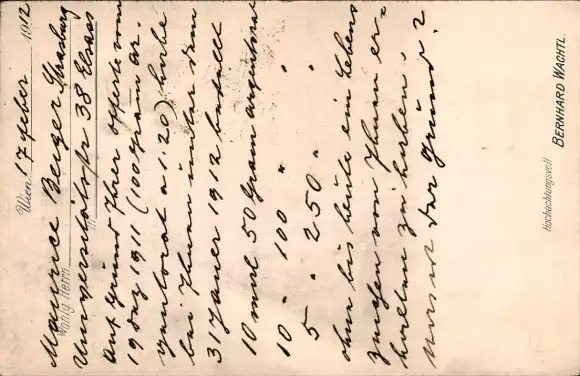 Wien, 17 feber 1912
Wohlg. Herrn
Maurice Berger Strasburg
Universitätstr 38 Elsass
Auf Grund Ihrer offerte vom
19 Dez 1911 (100 Gram ar.
gentorat a 1.20) habe
bei Ihnen unter dem
31 Janer 1912 bestellt
10 mal 50 Gram argentorat
10 " 100 " "
5 " 250 " "
ohne bis heute ein Lebens
zeichen von Ihnen er-
halten zu haben.
was ist der Grund?
Hochachtungsvoll
BERNHARD WACHTL.